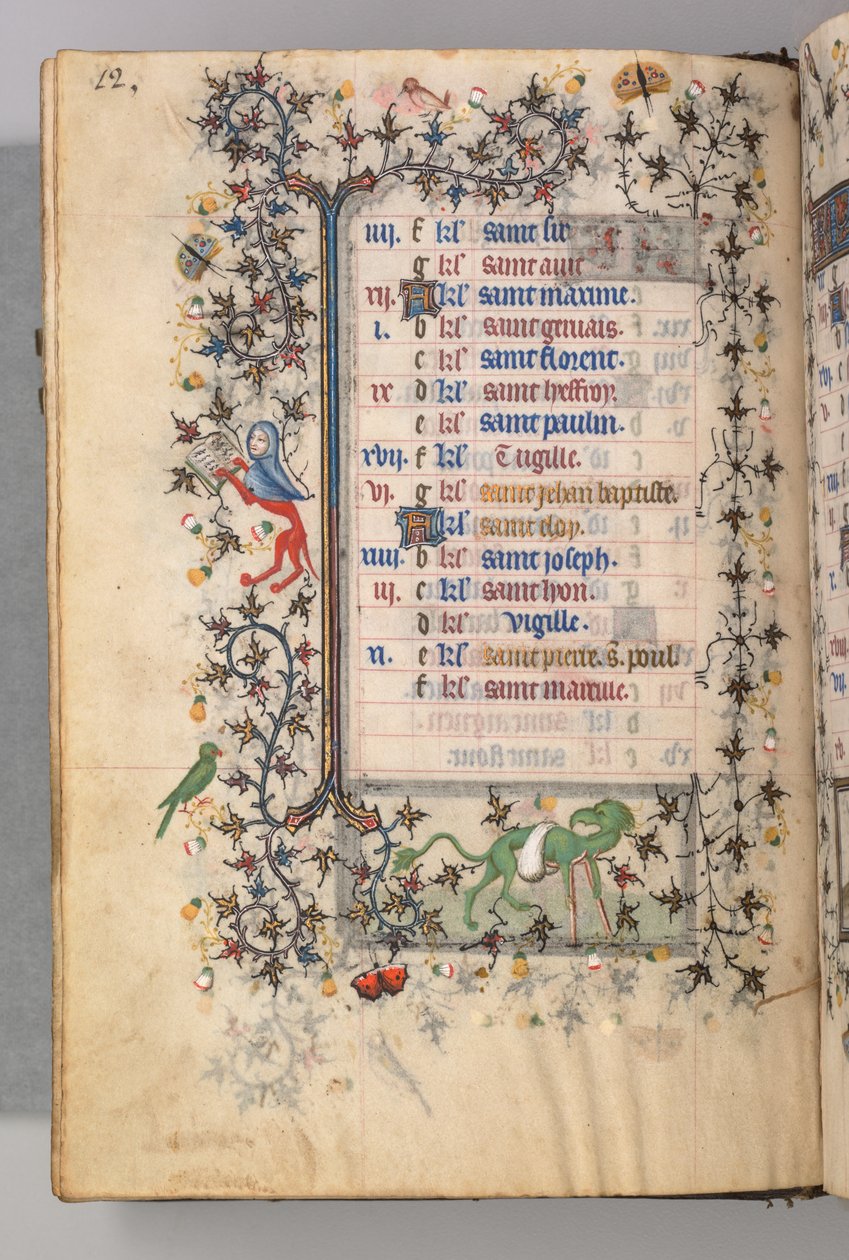 12,
iiij. f kl' saint sir
g kl' saint auit
xij. A kl' saint maxime.
i. b kl' saint geruais.
c kl' saint florent.
ix d kl' saint lyeffroy.
e kl' saint paulin.
xvij. f kl' Vigille.
vj. g kl' saint jehan baptiste.
A kl' saint eloy.
xiiij. b kl' saint joseph.
iij. c kl' saint lyon.
d kl' vigille.
xi. e kl' saint pierre. s. poul.
f kl' saint marcule.